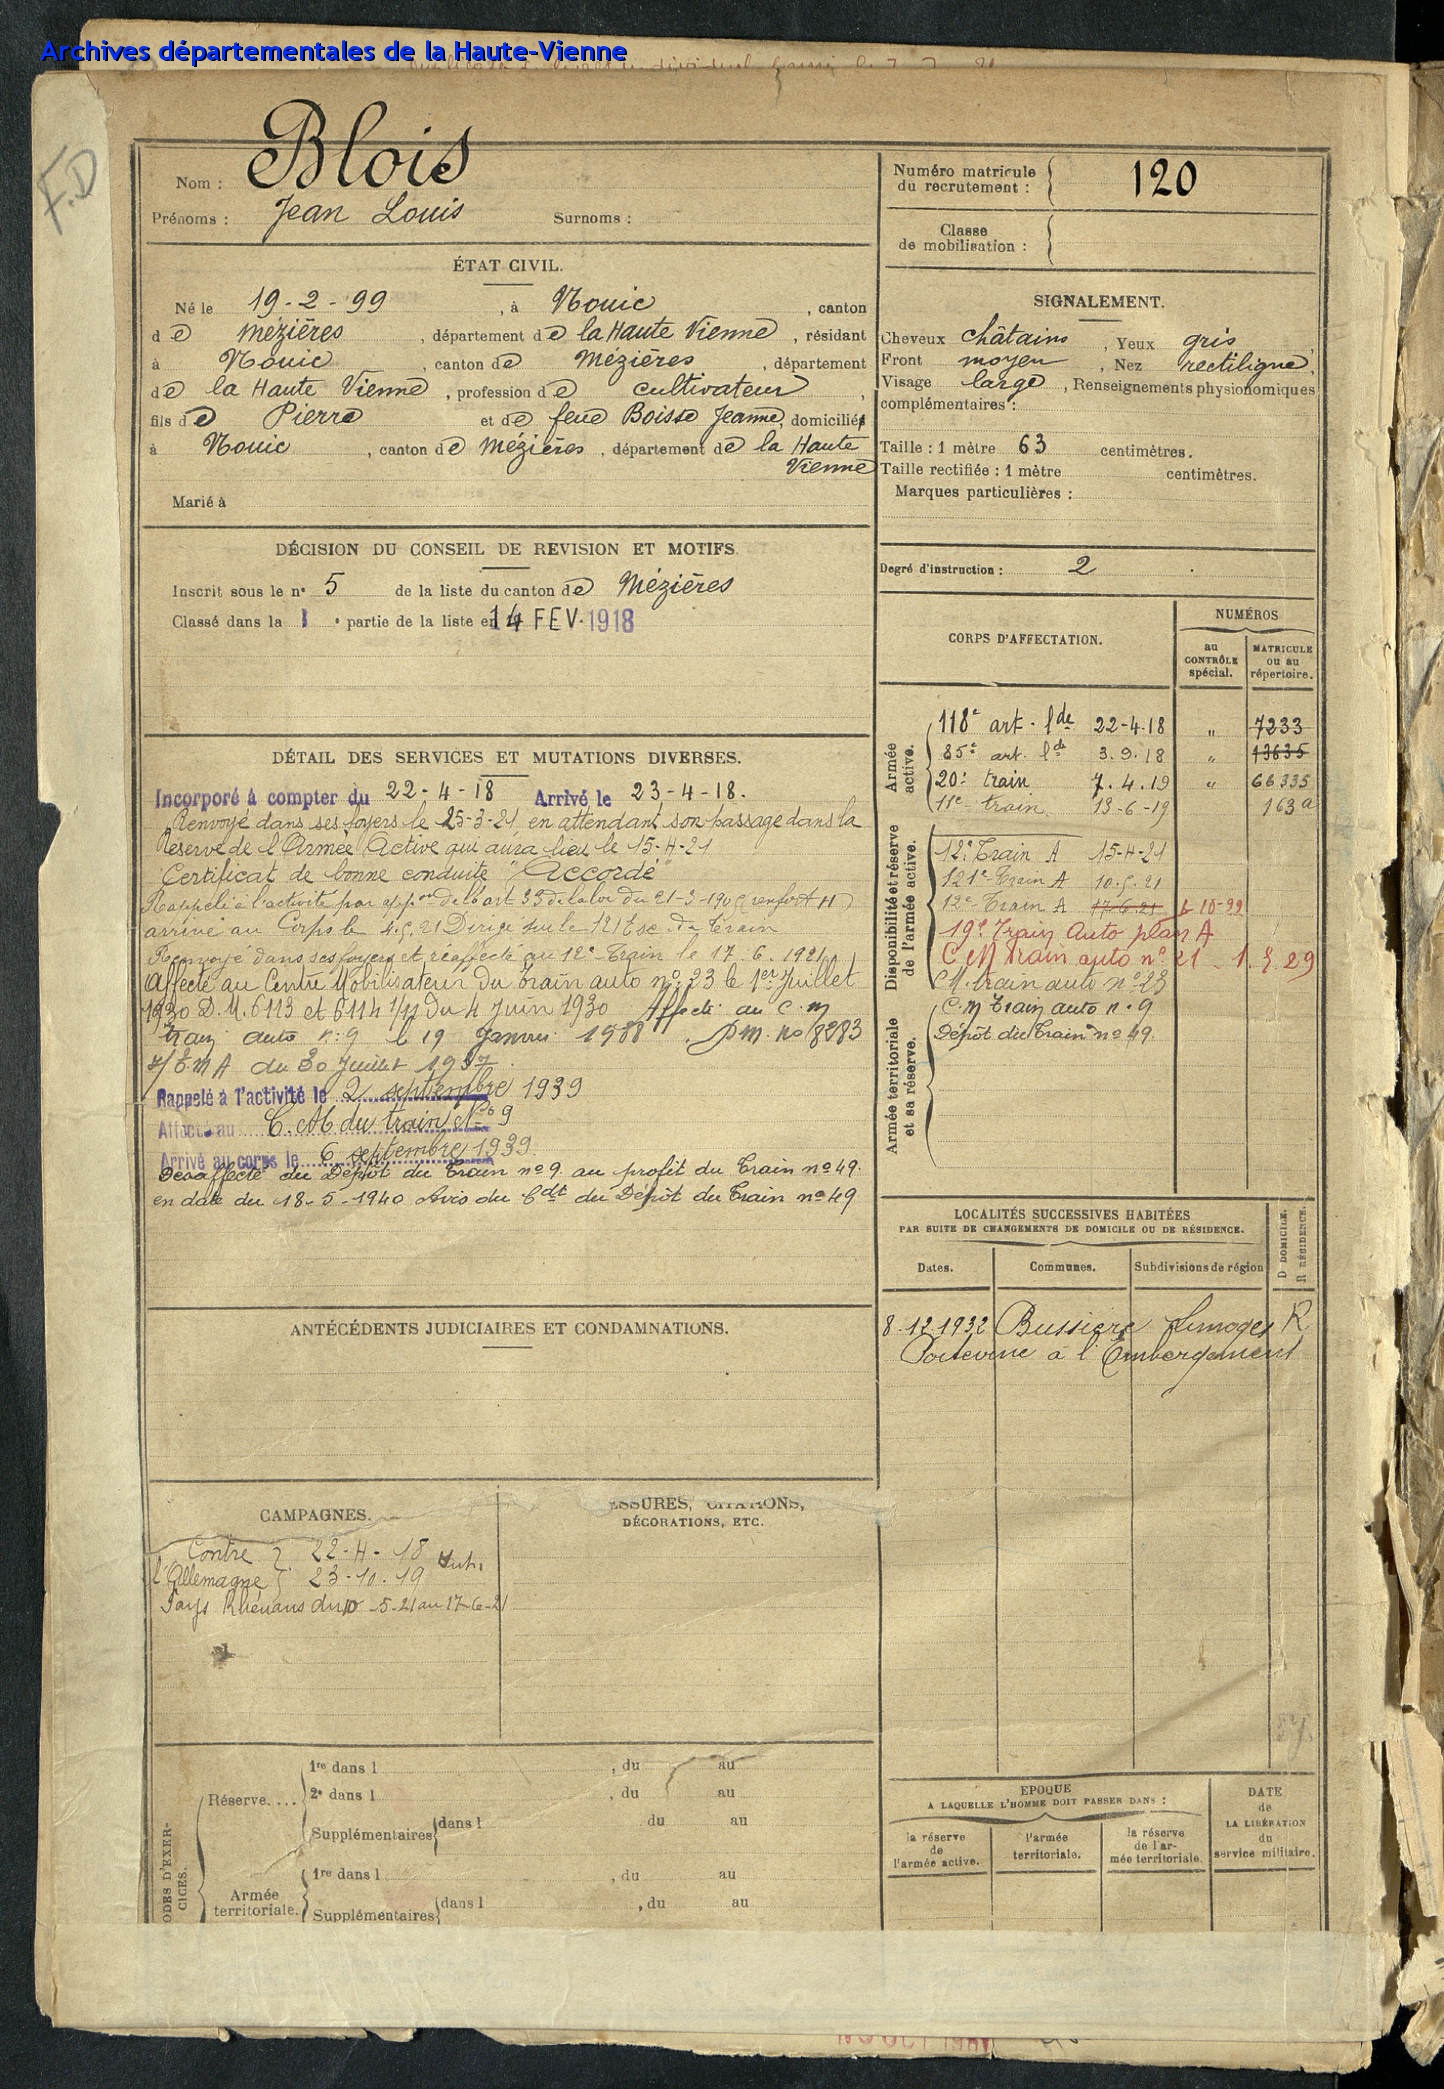 Archives départementales de la Haute-Vienne
F.D
Nom : Blois
Prénoms : Jean Louis Surnoms :
Numéro matricule
du recrutement : 120
Classe
de mobilisation :
ÉTAT CIVIL.
Né le 19-2-99, à Nouic, canton
de Mézières, département de la Haute Vienne, résidant
à Nouic, canton de Mézières, département
de la Haute Vienne, profession de cultivateur,
fils de Pierre et de feue Boisse Jeanne, domiciliés
à Nouic, canton de Mézières, département de la Haute
Vienne
Marié à
SIGNALEMENT.
Cheveux châtains, Yeux gris,
Front moyen, Nez rectiligne,
Visage large, Renseignements physionomiques
complémentaires :
Taille : 1 mètre 63 centimètres.
Taille rectifiée : 1 mètre centimètres.
Marques particulières :
Degré d'instruction : 2
DÉCISION DU CONSEIL DE REVISION ET MOTIFS.
Inscrit sous le n° 5 de la liste du canton de Mézières
Classé dans la 1e partie de la liste en 14 FEV. 1918
DÉTAIL DES SERVICES ET MUTATIONS DIVERSES.
Incorporé à compter du 22-4-18 Arrivé le 23-4-18.
Renvoyé dans ses foyers le 25-3-21 en attendant son passage dans la
Réserve de l'Armée Active qui aura lieu le 15-4-21
Certificat de bonne conduite "Accordé"
Rappelé à l'activité par appon de l'art 33 de la loi du 21-3-190
arrivé au Corps le 4.5.21 Dirigé sur le 121e Esc. du Train
Renvoyé dans ses foyers et réaffecté au 12e Train le 17-6-1921
Affecté au Centre Mobilisateur du train auto n° 23 le 1er Juillet
1930 D.M. 6113 et 6114 1/11 du 4 Juin 1930 Affecté au C.M
Train auto n: 9 le 19 Janvier 1938. D.M. No 8283
/EMA du 30 Juillet 1937
Rappelé à l'activité le 2 septembre 1939
Affecté au C.M du train No 9
Arrivé au corps le 6 septembre 1939
Desaffecté du Dépôt du Train n° 9 au profit du Train n° 49.
en date du 18-5-1940 Avis du Cdt du Dépôt du Train n° 49
CORPS D'AFFECTATION.
NUMÉROS
au
CONTRÔLE
spécial.
MATRICULE
ou au
répertoire.
Armée
active.
118e art. lde 22-4-18 " 7233
85e art. lde 3.9.18 " 13635
20e train 7.4.19 " 66335
11e train 13-6-19 163a
Disponibilité et réserve
de l'armée active.
12e Train A 15-4-21
121e Train A 10.5.21
12e Train A 17.6.21
19e Train Auto plan A
C M train auto n° 21 1.5.29
C.M. train auto n° 23
Armée territoriale
et sa réserve.
C.M Train auto n. 9
Dépôt du Train n° 49.
LOCALITÉS SUCCESSIVES HABITÉES
PAR SUITE DE CHANGEMENTS DE DOMICILE OU DE RÉSIDENCE.
D DOMICILE.
R RÉSIDENCE.
Dates. Communes. Subdivisions de région
8-12-1932 Bussiere Limoges R
Poitevine à l'Embergement
ANTÉCÉDENTS JUDICIAIRES ET CONDAMNATIONS.
CAMPAGNES.
ESSURES, CITATIONS,
DÉCORATIONS, ETC.
Contre 22-4-18
l'Allemagne 23-10-19
Pays Rhénans du 10-5-21 au 17-6-21
ODES D'EXER-
CICES.
Réserve....
1re dans l , du au
2e dans l , du au
Supplémentaires dans l du au
Armée
territoriale.
1re dans l , du au
Supplémentaires dans l , du au
EPOQUE
A LAQUELLE L'HOMME DOIT PASSER DANS :
la réserve
de
l'armée active.
l'armée
territoriale.
la réserve
de l'ar-
mée territoriale.
DATE
de
LA LIBÉRATION
du
service militaire.